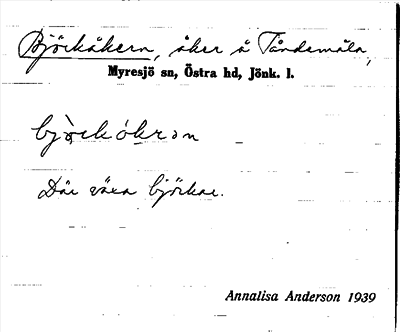 Björkåkern, åker å Tåndamåla,
Myresjö sn, Östra hd, Jönk. l.
bjö̀rkókṛən
Där växa björkar.
Annalisa Anderson 1939